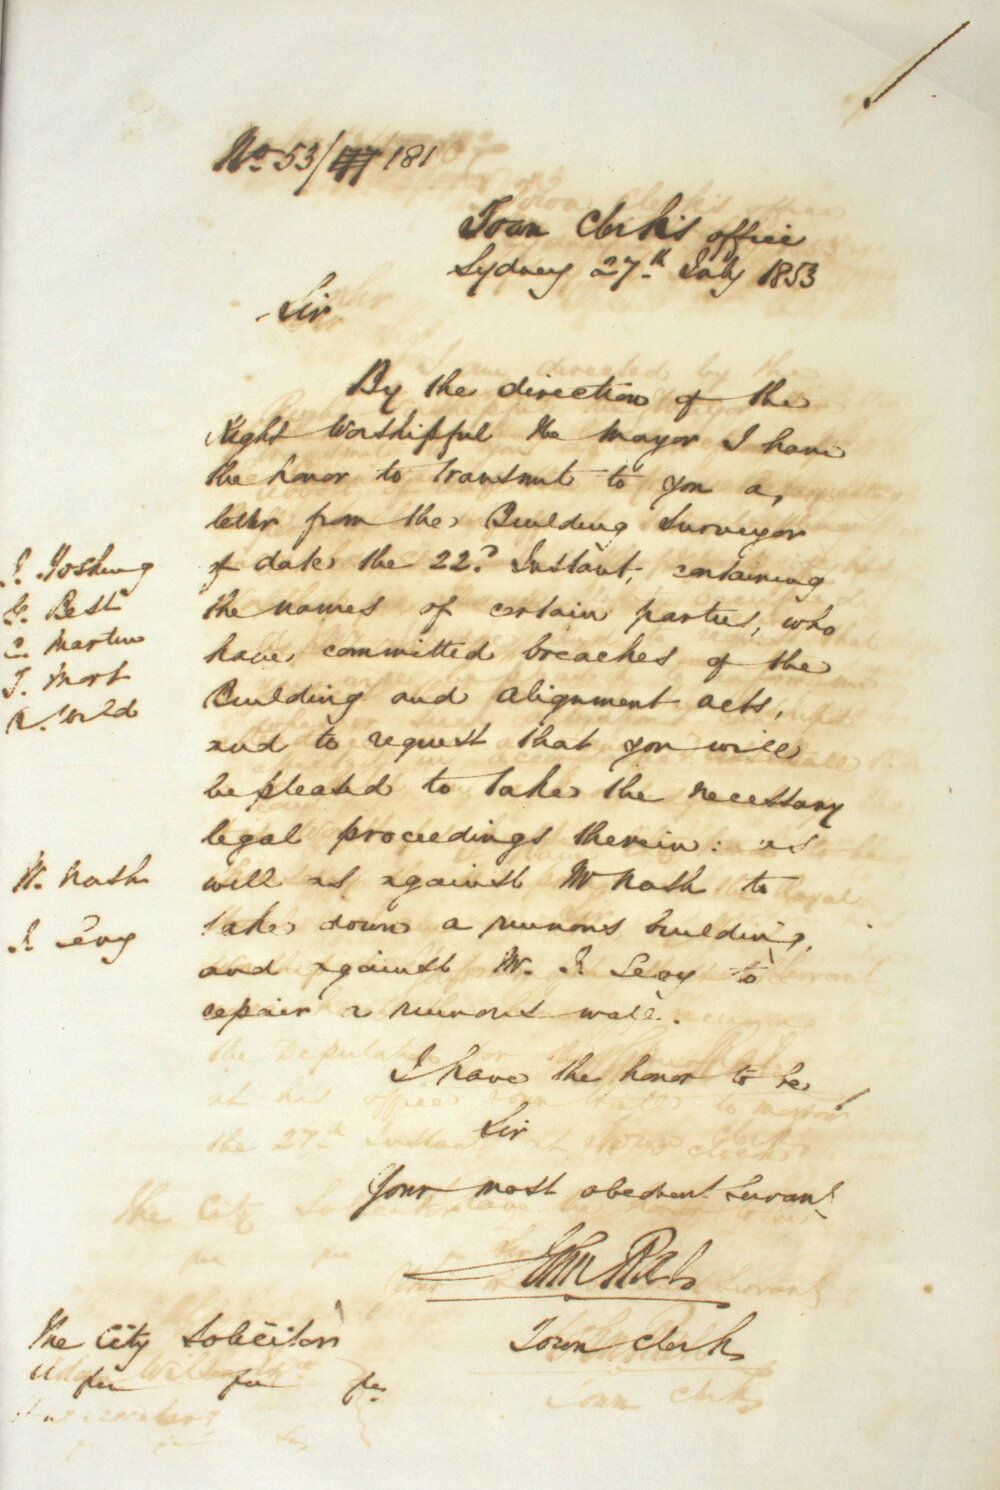 No. 53/177 181
Town Clerk's office
Sydney 27th July 1853
Sir
By the direction of the
Right Worshipful the Mayor I have
the honor to transmit to you a
letter from the Building Surveyor
of date the 22d Instant, containing
the names of certain parties, who
have committed breaches of the
Building and alignment acts,
and to request that you will
be pleased to take the necessary
legal proceedings therein: as
well as against W Nash to
take down a ruinous building,
and against Mr. J. Levy to
repair a ruinous wall.
J.
G. Best
C. Martin
T. Mort
R.
W. Nash
J. Levy
I have the honor to be
Sir
Your most obedient Servant
John
Town Clerk
The City Solicitor